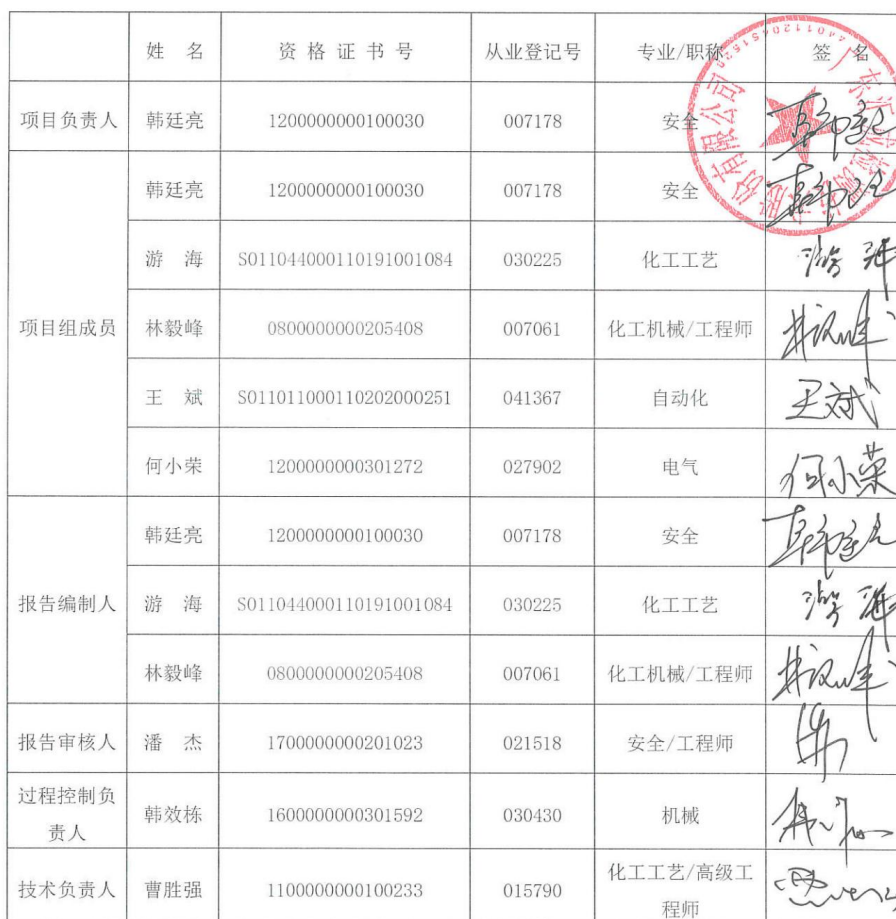 姓 名 资格证书号 从业登记号 专业/职称 签 名
项目负责人 韩廷亮 1200000000100030 007178 安全
项目组成员 韩廷亮 1200000000100030 007178 安全
游 海 S011044000110191001084 030225 化工工艺
林毅峰 0800000000205408 007061 化工机械/工程师
王 斌 S011011000110202000251 041367 自动化 王斌
何小荣 1200000000301272 027902 电气 何小荣
报告编制人 韩廷亮 1200000000100030 007178 安全
游 海 S011044000110191001084 030225 化工工艺
林毅峰 0800000000205408 007061 化工机械/工程师
报告审核人 潘 杰 1700000000201023 021518 安全/工程师
过程控制负
责人 韩效栋 1600000000301592 030430 机械
技术负责人 曹胜强 1100000000100233 015790 化工工艺/高级工
程师